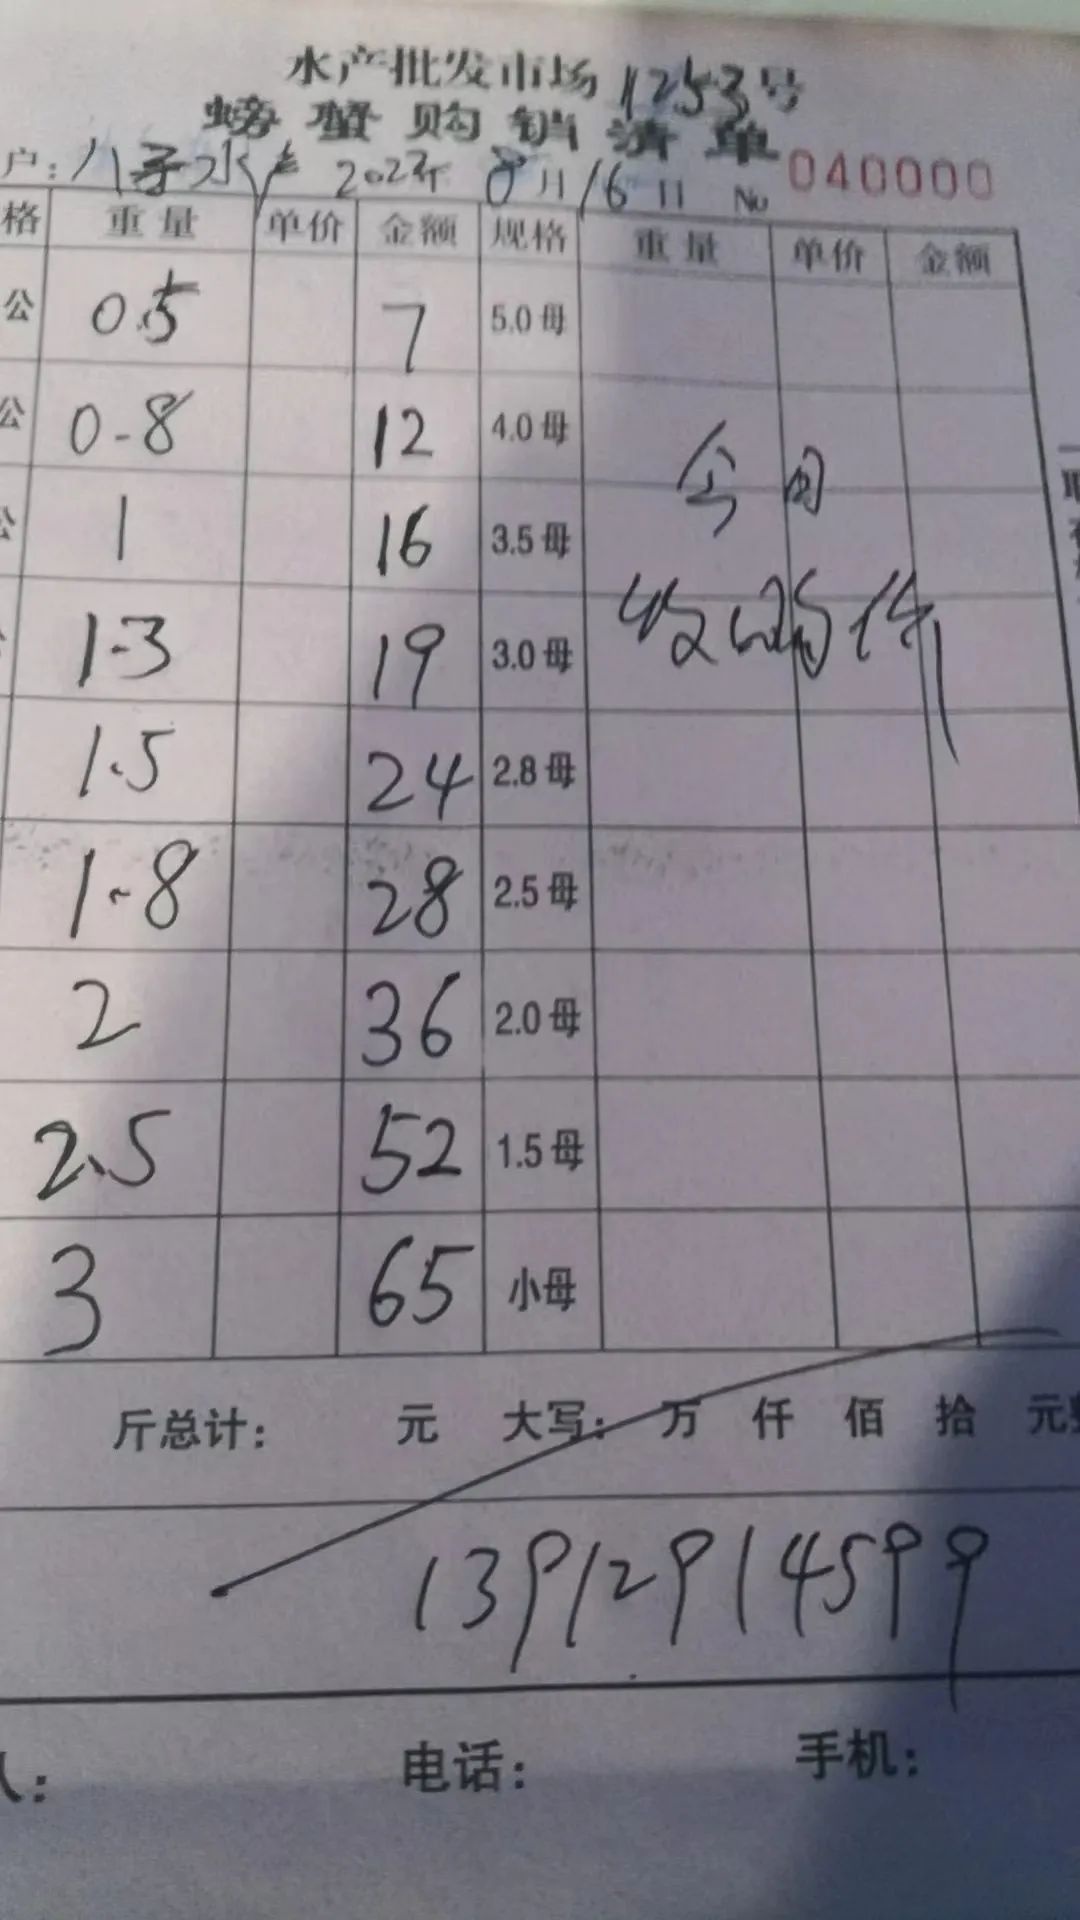 水产批发市场 1253号
螃蟹购销清单
户: 八子水产 2023年 8月16日 No 040000
格 重量 单价 金额 规格 重量 单价 金额
公 0.5 7 5.0母
公 0-8 12 4.0母 今日
公 1 16 3.5母
1-3 19 3.0母 收购价
1.5 24 2.8母
1-8 28 2.5母
2 36 2.0母
2.5 52 1.5母
3 65 小母
斤总计: 元 大写: 万 仟 佰 拾 元整
13912914599
人: 电话: 手机: